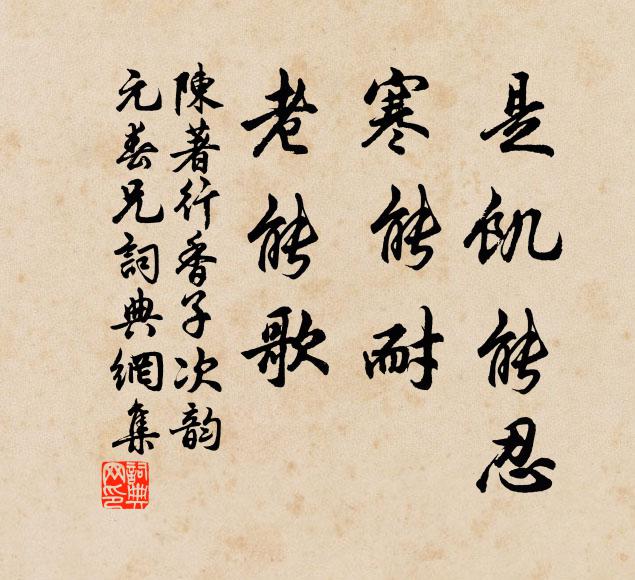 是飢能忍
寒能耐
老能歌
陳著行香子次韵
元春兄詞典網集
詞典網印